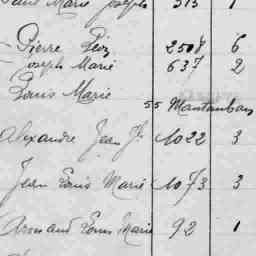 Paul Marie Joseph 313 1
Pierre Léon 2508 6
Joseph Marie 637 2
Louis Marie
55 Montauban
Alexandre Jean 1022 3
Jean Louis Marie 1073 3
Armand Louis Marie 92 1